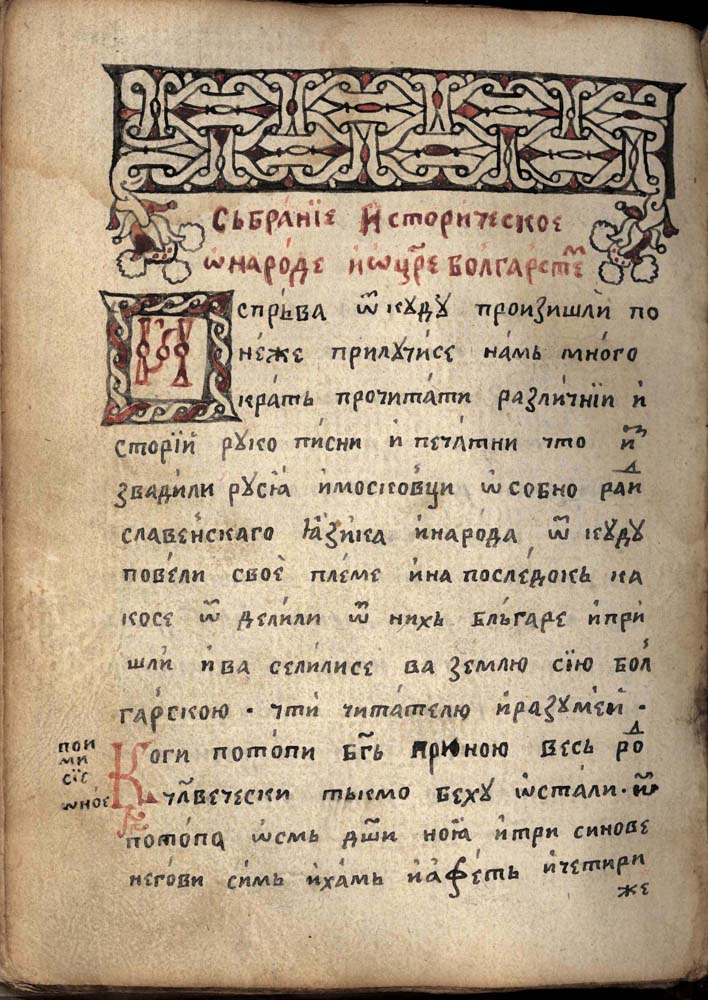 Събра́нїе Исторїческое
ѡ наро́де и ѡ цр҃е болга́рсте
И
спрьва ѿ куду произишли по
не́же прилꙋчисе намь много
кра́ть прочита́ти разли́чнїи и
сторїй рꙋко писни и печа́тни что и҆з
звадили рꙋсїѧ и московци ѡсобно ра́ди
славе́нскаго ꙗзи́ка и наро́да ѿ кꙋдꙋ
повели своѐ племе и на последокь ка
косе ѿ дели́ли ѿ нихь бльгаре и при
шли и ва сели́лисе ва землю сїю бол
га́рскою · чти чита́телю и разꙋме́й ·
пои
ми
сїе
ѡно́е
Коги потопи бг҃ь при ною весь ро́д
чл҃вечески тькмо бехꙋ ѡстали · ѿ
потопа ѡсмь дш҃и ноїа и три синове
негови симь и хамь и афе́ть и четири
же